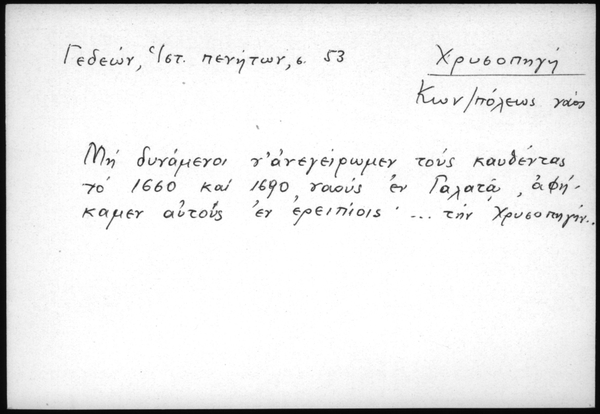 Γεδεών, Ἱστ. πενήτων, σ. 53
Χρυσοπηγή
Κων/πόλεως ναός
Μή δυνάμενοι ν' ἀνεγείρωμεν τούς καυθέντας
τό 1660 καί 1690 ναούς ἐν Γαλατᾷ, ἀφή-
καμεν αὐτούς ἐν ἐρειπίοις· ... τήν Χρυσοπηγήν...